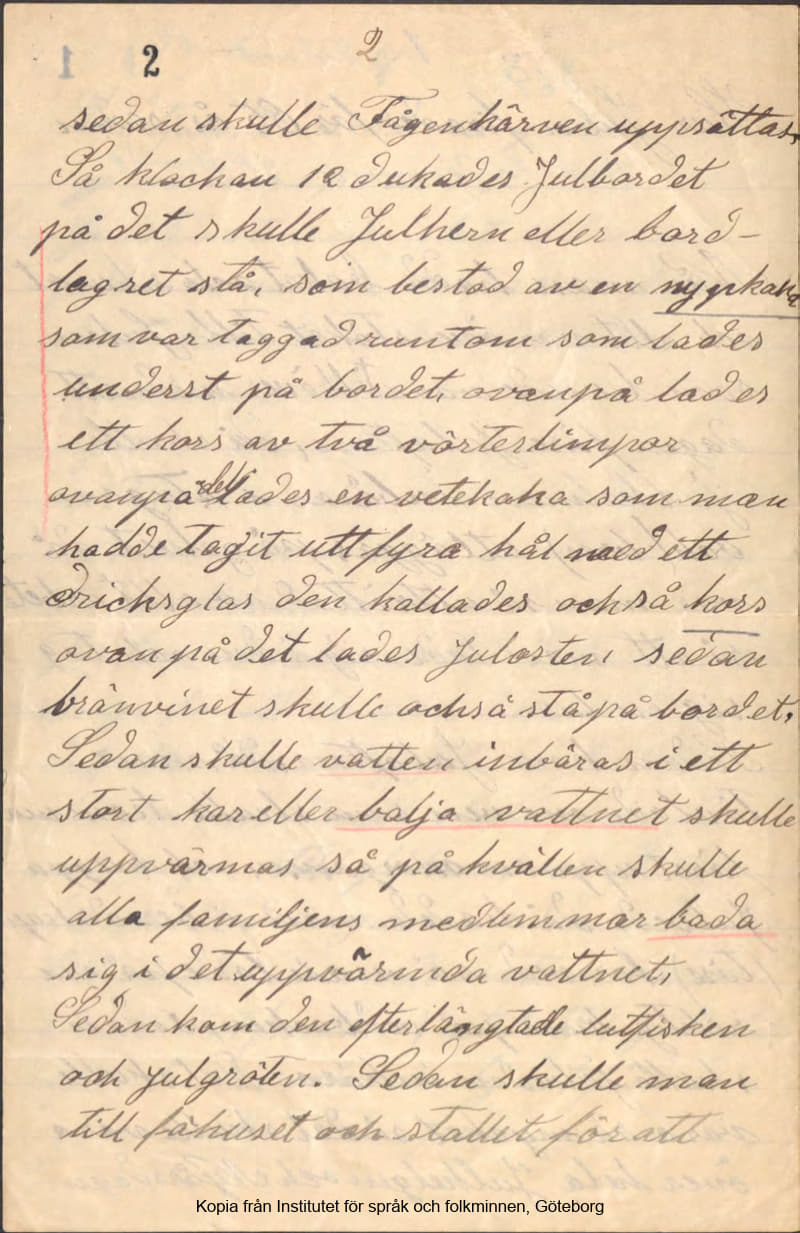 2 2
sedan skulle Fågenkärven uppsättas.
Så klockan 12 dukades Julbordet
på det skulle Julhern eller bord-
lagret stå, som bestod av en
som var taggad runtom som lades
underst på bordet, ovanpå lades
ett kors av två vörterlimpor
ovanpå det lades en vetekaka som man
hadde tagit utt fyra hål med ett
dricksglas den kallades också kors
ovan på det lades Julosten, sedan
bränvinet skulle också stå på bordet.
Sedan skulle vatten inbäras i ett
stort kar eller balja vattnet skulle
uppvärmas så på kvällen skulle
alla familjens medlemmar bada
sig i det uppvärmda vattnet,
Sedan kom den efterlängtade lutfisken
och julgröten. Sedan skulle man
till fähuset och stallet för att
Kopia från Institutet för språk och folkminnen, Göteborg